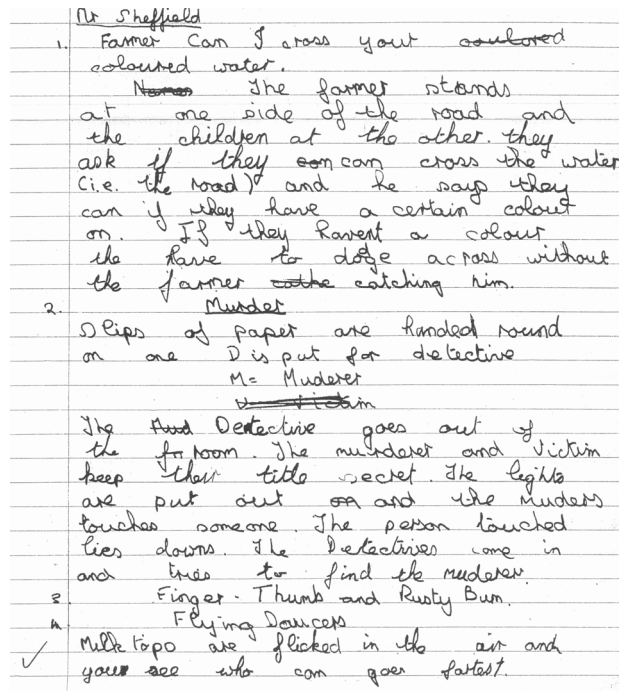 Mr Sheffield
1. Farmer Can I cross your coulored
coloured water.
Names The farmer stands
at one side of the road and
the children at the other. they
ask if they can can cross the water
(i.e. the road) and he says they
can if they have a certain colour
on. If they havent a colour
the have to doge across without
the farmer catching him.
2. Murder
Slips of paper are handed round
on one D is put for detective
M= Muderer
V= Victim
The Detective goes out of
the room. The murderer and Victim
keep their title secret. The lights
are put out and the muders
touches someone. The person touched
lies downs. The Detectives come in
and tries to find the muderer.
3. Finger - Thumb and Rusty Bum.
4. Flying Saucers
Milk topo are flicked in the air and
your see who can goes fartest.